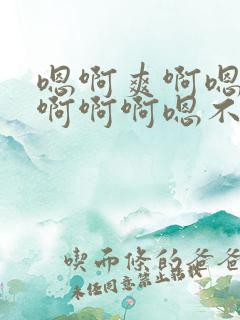 嗯啊爽啊嗯
啊啊啊嗯不
喫両條的爸爸
未经同意禁止转载